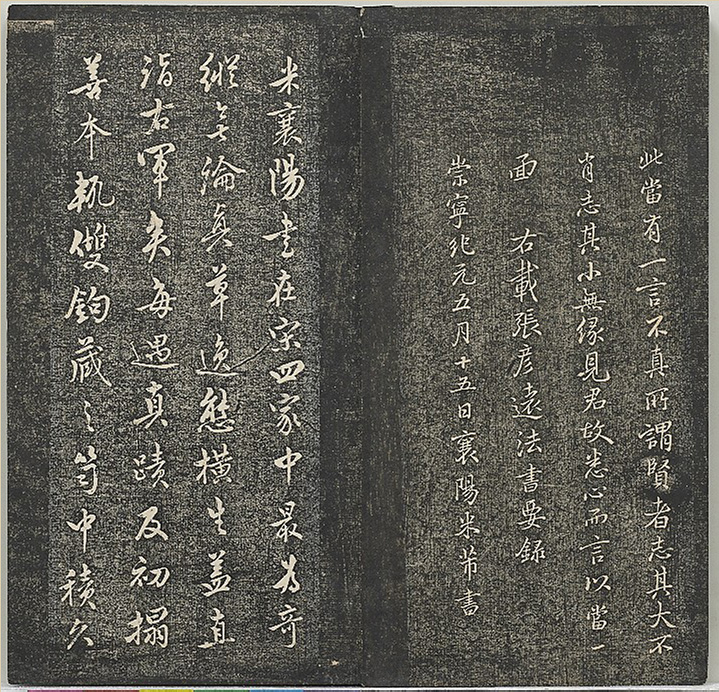 此當有一言不真所謂賢者志其大不
肖志其小無緣見君故悉心而言以當一
面　右載張彥遠法書要錄
崇寧紀元五月十五日襄陽米芾書
米襄陽書在宋四家中最為奇
縱無論真草逸態橫生蓋直
詣右軍矣每遇真蹟及初搨
善本執雙鉤藏之笥中積久